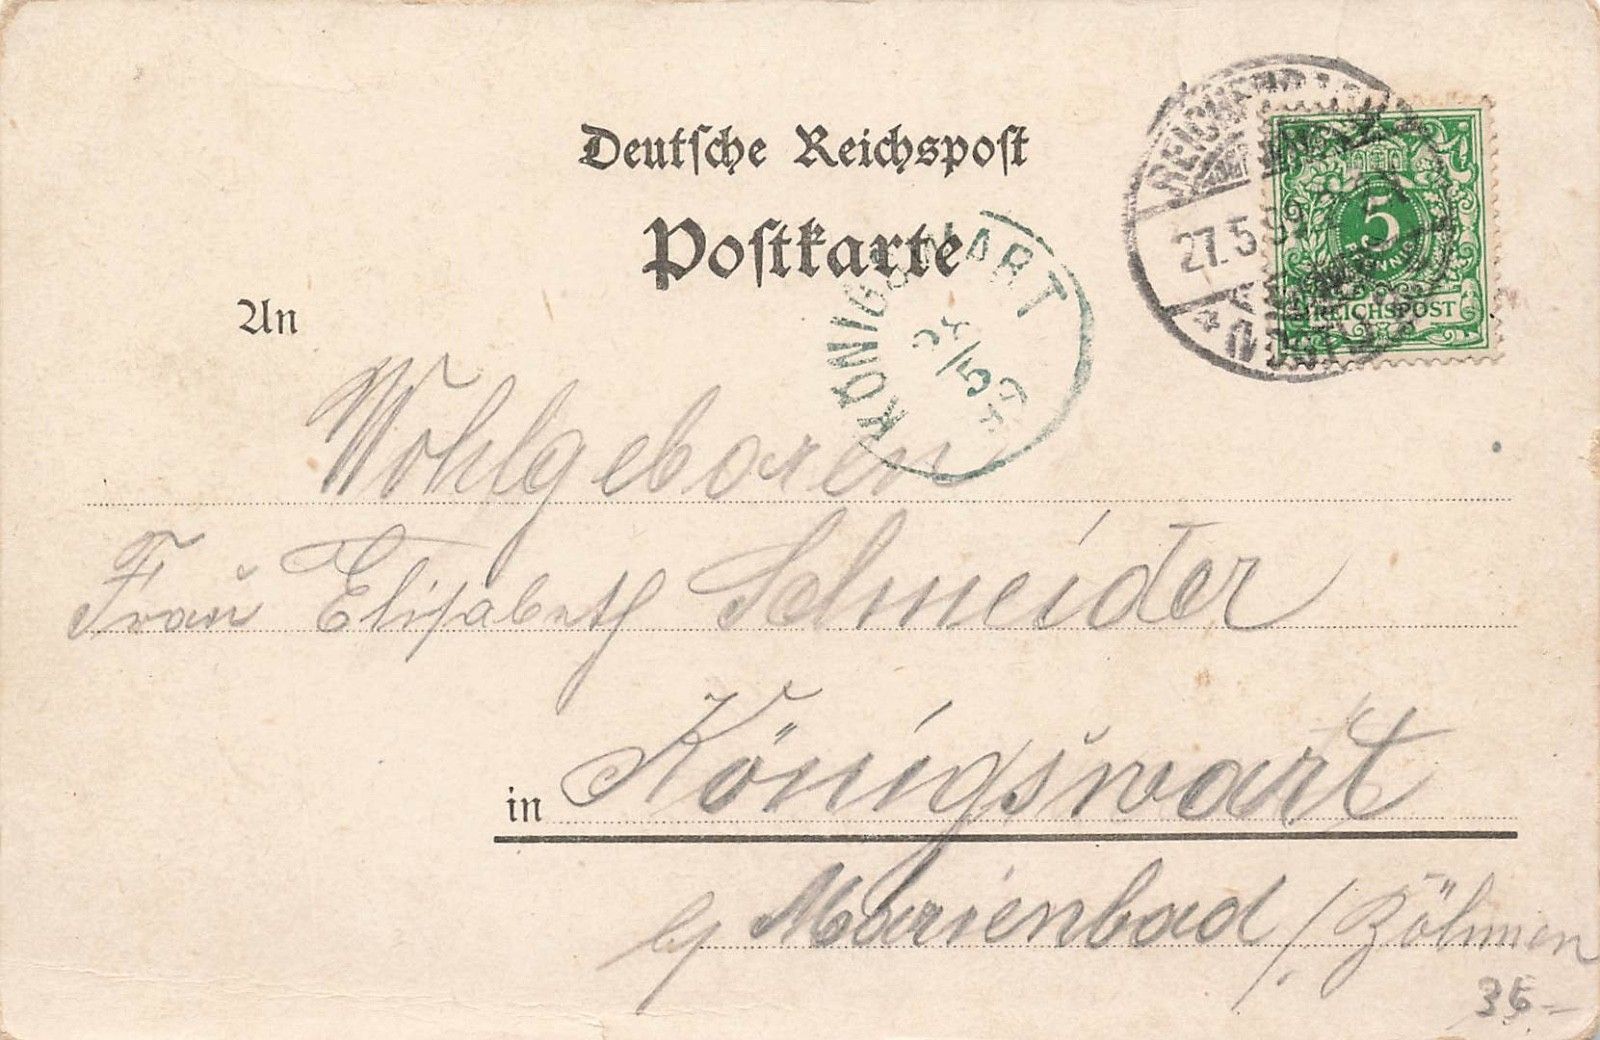 Deutsche Reichspost
Postkarte
An
KÖNIGSWART
5
27.5.99
5
PFENNIG
REICHSPOST
Wohlgeboren
Frau Elisabeth Schneider
in Königswart
b/ Marienbad / Böhmen
35-